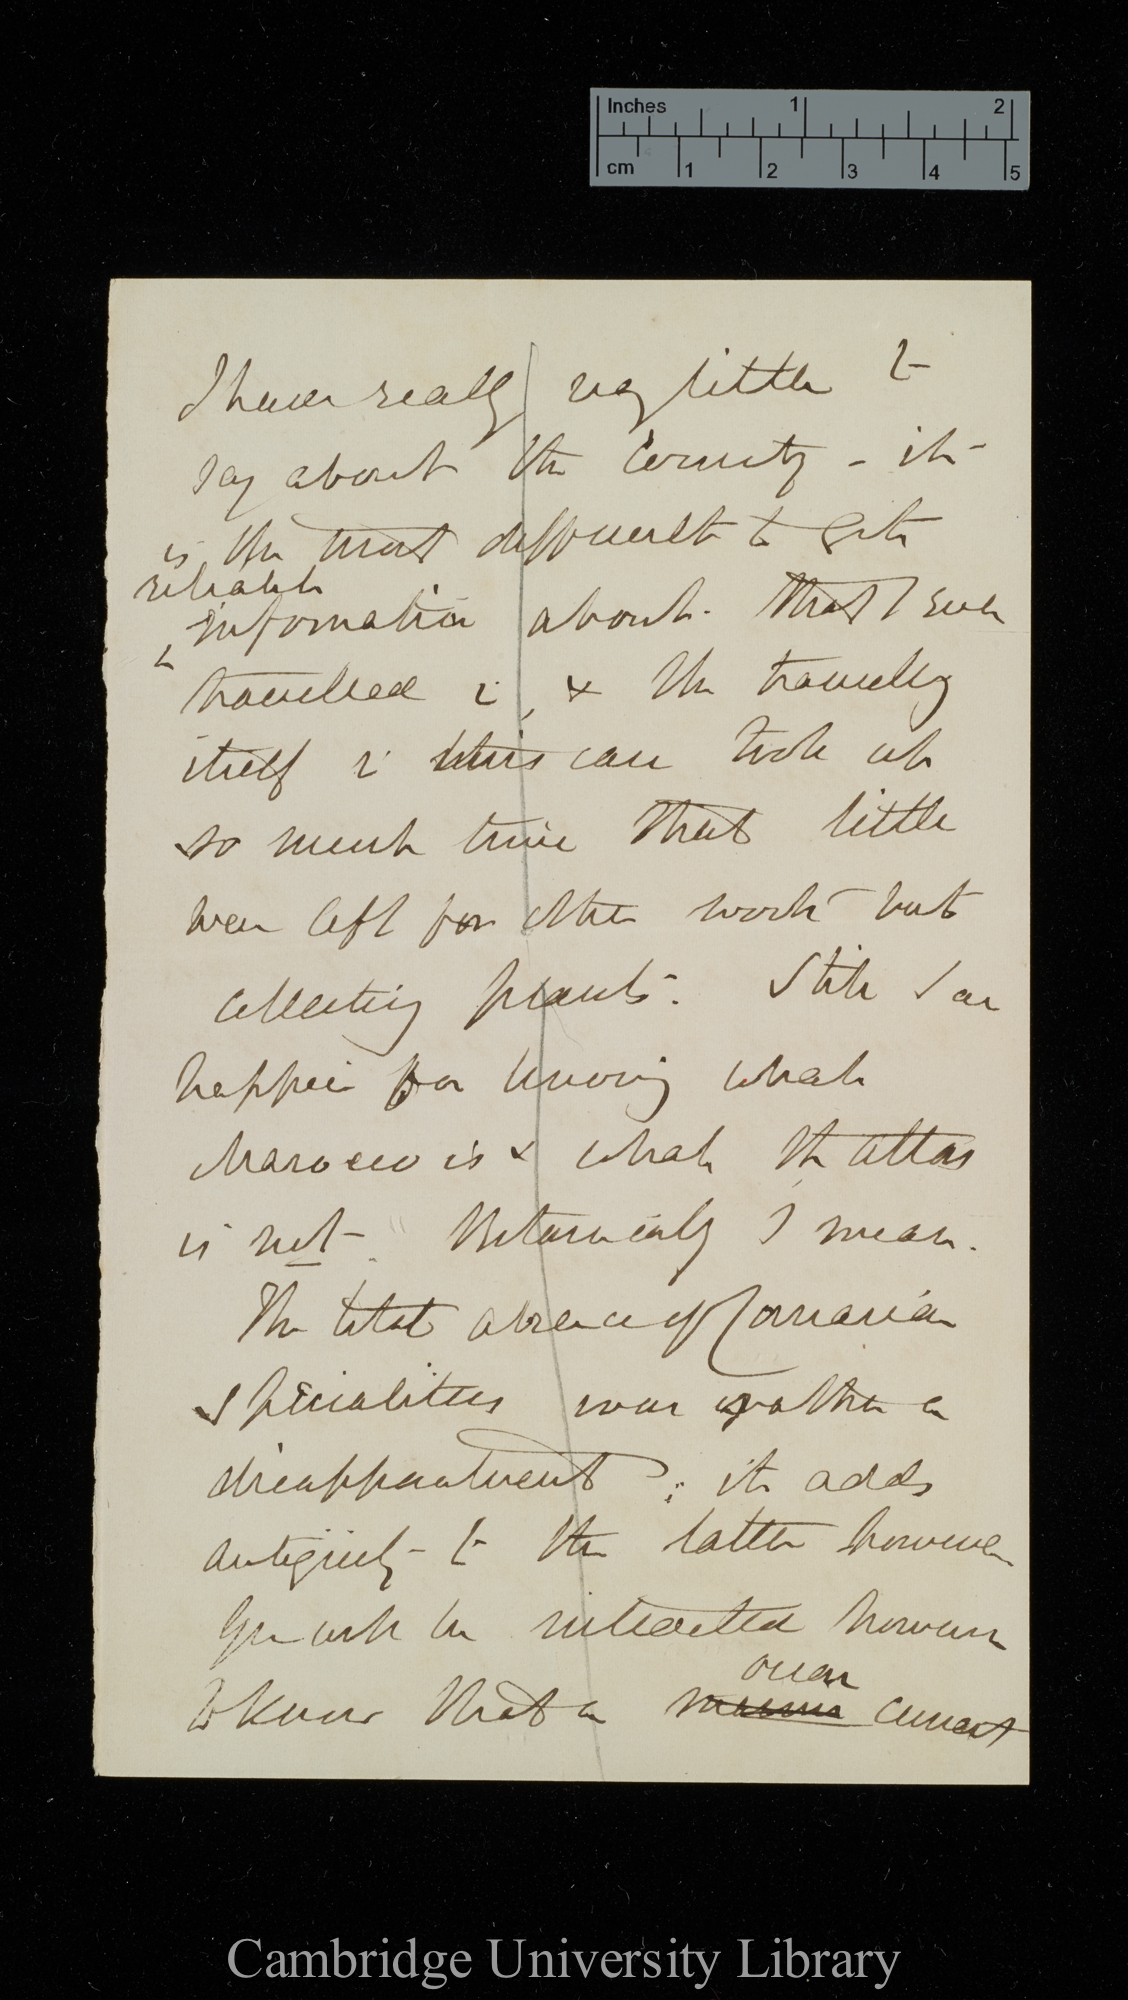 Inches 1 2
cm 1 2 3 4 5
I have really very little to
say about the Country – it
is the most difficult to get
reliable
information about that I ever
travelled in, & the travelling
itself in this case took up
so much time that little
was left for other work but
collecting plants. Still I am
happier for knowing what
Marocco is & what the Atlas
is not. Botanically I mean.
The total absence of Canarian
specialities was rather a
disappointment; it adds
antiquity to the latter however
You will be interested however
to know that a marine ocean current
Cambridge University Library